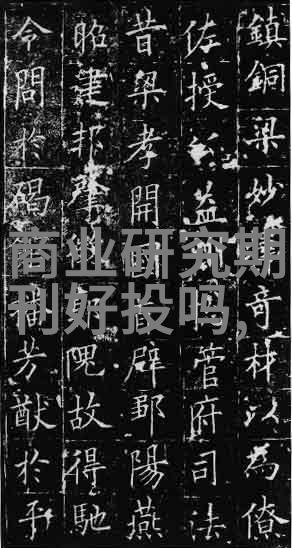 鎮銅梁妙奇材以為僚
佐授公益管府司法
昔梁孝開辟鄒陽燕
昭建邦肇隗故得馳
令問於碣播芳猷於平
商业研究期
刊好投吗,